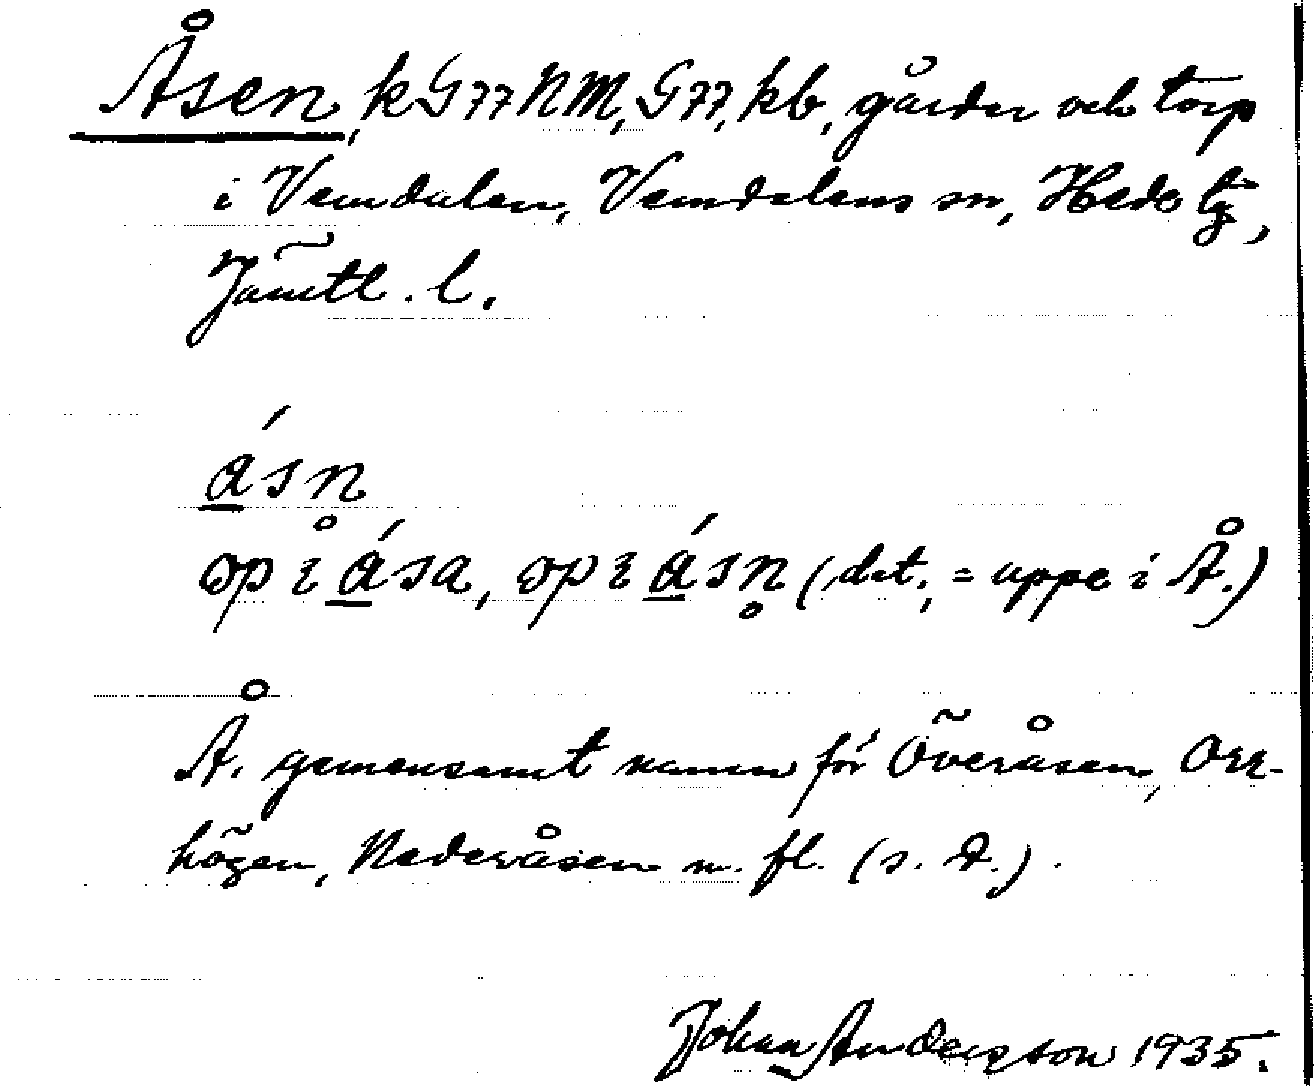 Åsen, k G77 NM, G77, kb, gårdar och torp
i Vemdalen, Vemdalens sn, Hede tg,
Jämtl. l.
á̱sn
op ɩ á̱sa, op ɩ á̱sn̥ (dat., = uppe i Å.)
Å. gemensamt namn för Överåsen, Orr-
högen, Nederåsen m. fl. (s. d.).
Johan Anderson 1935.